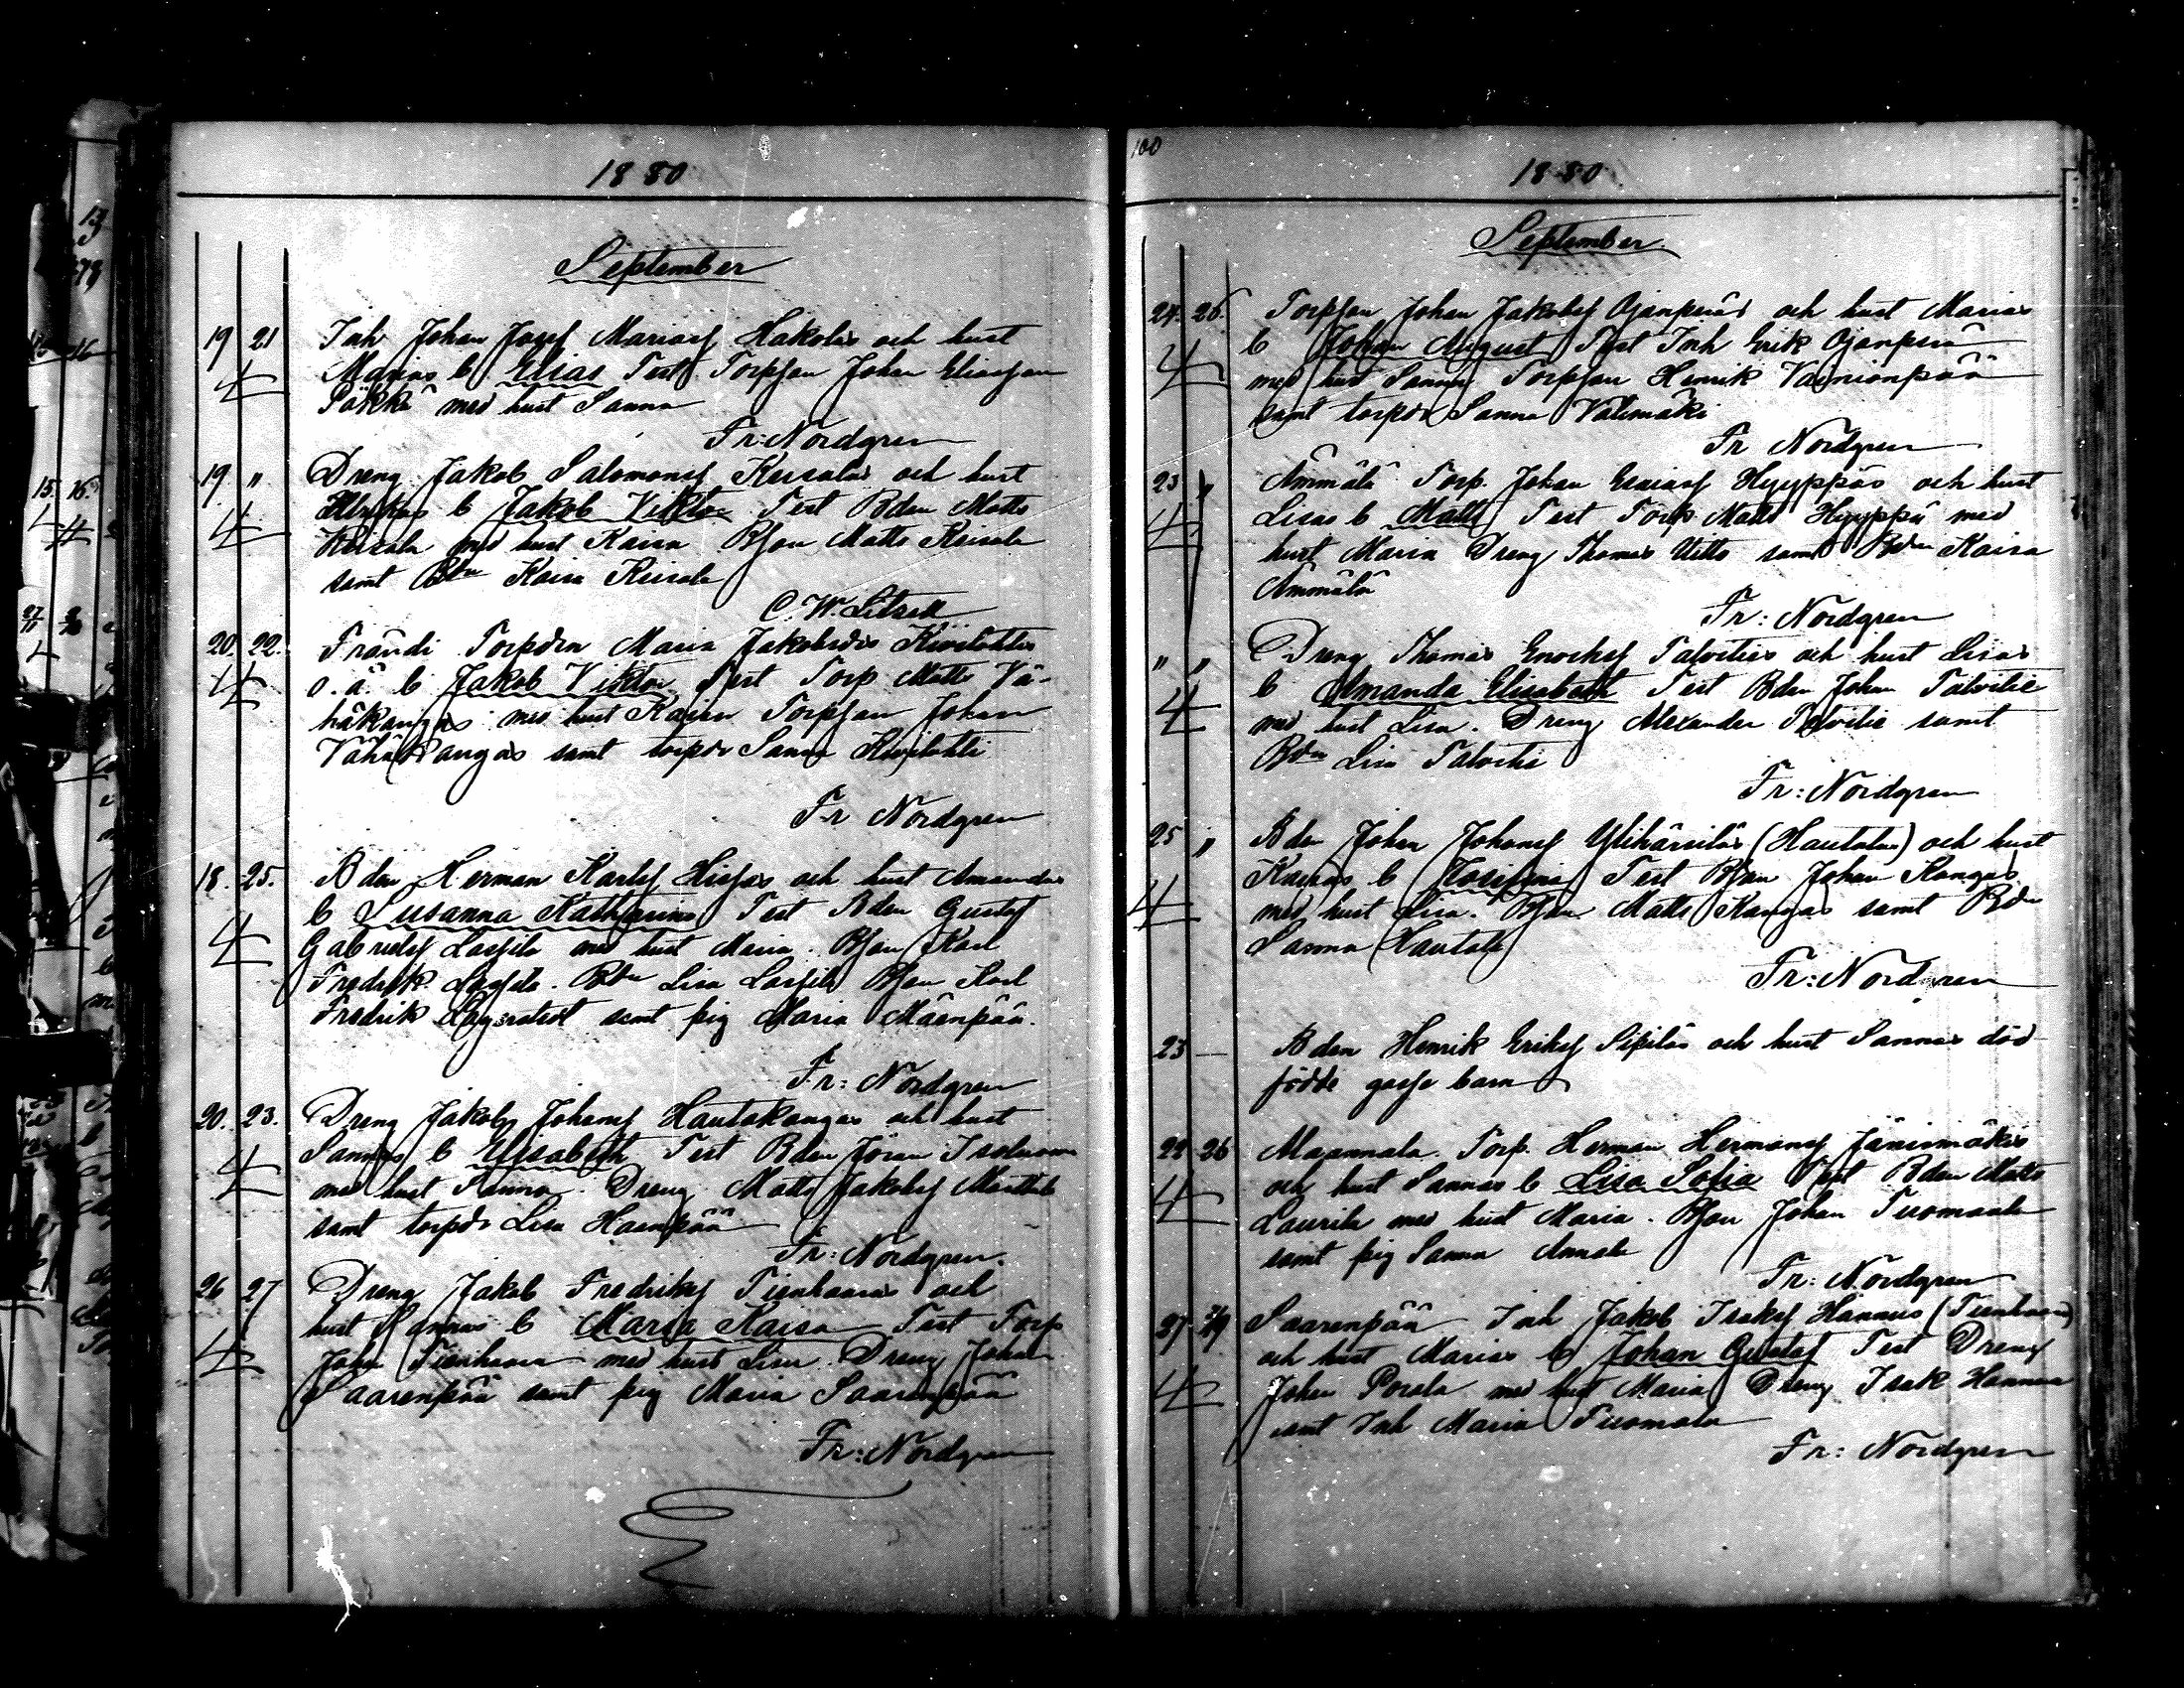 1880
September
19 21 Inh Johan Josef Mariasf Hakolas och hust
Marias b Elias Test Torpson Johan Eliasson
Päkkä med hust Sanna
Fr: Nordgren
19 " Dreng Jakob Salomonsf Keisalas och hust
b Jakob Viktor Test Bden Matts
Keisala med hust Kaisa Bson Matts Keisala
samt Bdn Kaisa Keisala
C. W. Litzell
20. 22. Frändi Torpdrn Maria Jakobsdrs Kivilahtis
o. ä. b Jakob Viktor Test Torp Matts Vä-
häkangas med hust Kaisa Torpson Johan
Vähäkangas samt torpdr Sanna Kivilahti
Fr Nordgren
18. 25. Bden Herman Karlsf Hissas och hust Amandas
b Susanna Katharina Test Bden Gustaf
Gabrielsf Lassila med hust Maria. Bson Karl
Fredrik Lassila. Bdn Lisa Lassila Bson Karl
Fredrik Lagerstedt samt pig Maria Mäenpää.
Fr: Nordgren
20. 23. Dreng Jakob Johansf Hautakangas och hust
Sannas b Elisabeth Test Bden Jöran Isoluoma
med hust Sanna. Dreng Matts Jakobsf Marttila
samt torpdr Lisa Haanpää
Fr: Nordgren.
26 27 Dreng Jakob Fredriksf Tienhaaras och
hust Sannas b Maria Kaisa Test Torp
Johan Tienhaara med hust Lisa. Dreng Johan
Saarenpää samt pig Maria Saarenpää
Fr: Nordgren
100
1880
September
24. 26. Torpson Johan Jakobsf Ojanperäs och hust Marias
b Johan August Test Inh Erik Ojanperä
med hust Sanna Torpson Henrik Vainionpää
samt torpdr Sanna Välimäki
Fr Nordgren
23 " Ämmälä Torp. Johan Esaiasf Hyyppäs och hust
Lisas b Matts Test Torp Matts Hyyppä med
hust Maria Dreng Thomas Uitto samt Bdn Kaisa
Ämmälä
Fr: Nordgren
" " Dreng Thomas Enochsf Talvities och hust Lisas
b Amanda Elisabeth Test Bden Johan Talvitie
med hust Lisa. Dreng Alexander Talvitie samt
Bdn Lisa Talvitie
Fr: Nordgren
25 " Bden Johan Johansf Ylihärsiläs (Hautalas) och hust
Kaisas b Josefina Test Bson Johan Kangas
med hust Lisa. Bson Matts Kangas samt Bdn
Sanna Hautala
Fr: Nordgren
23 — Bden Henrik Eriksf Sipiläs och hust Sannas död
födde gosse barn
22 26 Maannala Torp. Herman Hermansf Jänismäkis
och hust Sannas b Lisa Sofia Test Bden Matts
Laurila med hust Maria. Bson Johan Tuomaala
samt pig Sanna Annala
Fr: Nordgren
27 29 Saarenpää Inh Jakob Isaksf Hannus (Tienhaara)
och hust Marias b Johan Gustaf Test Dreng
Johan Porela med hust Maria Dreng Isak Hannus
samt Inh Maria Tuomala
Fr: Nordgren